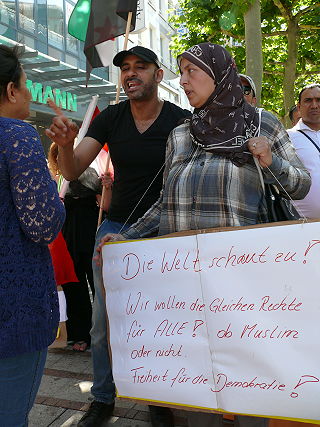 MANN
Die Welt schaut zu!
Wir wollen die Gleichen Rechte
für ALLE! ob Muslim
oder nicht.
Freiheit für die Demokratie!